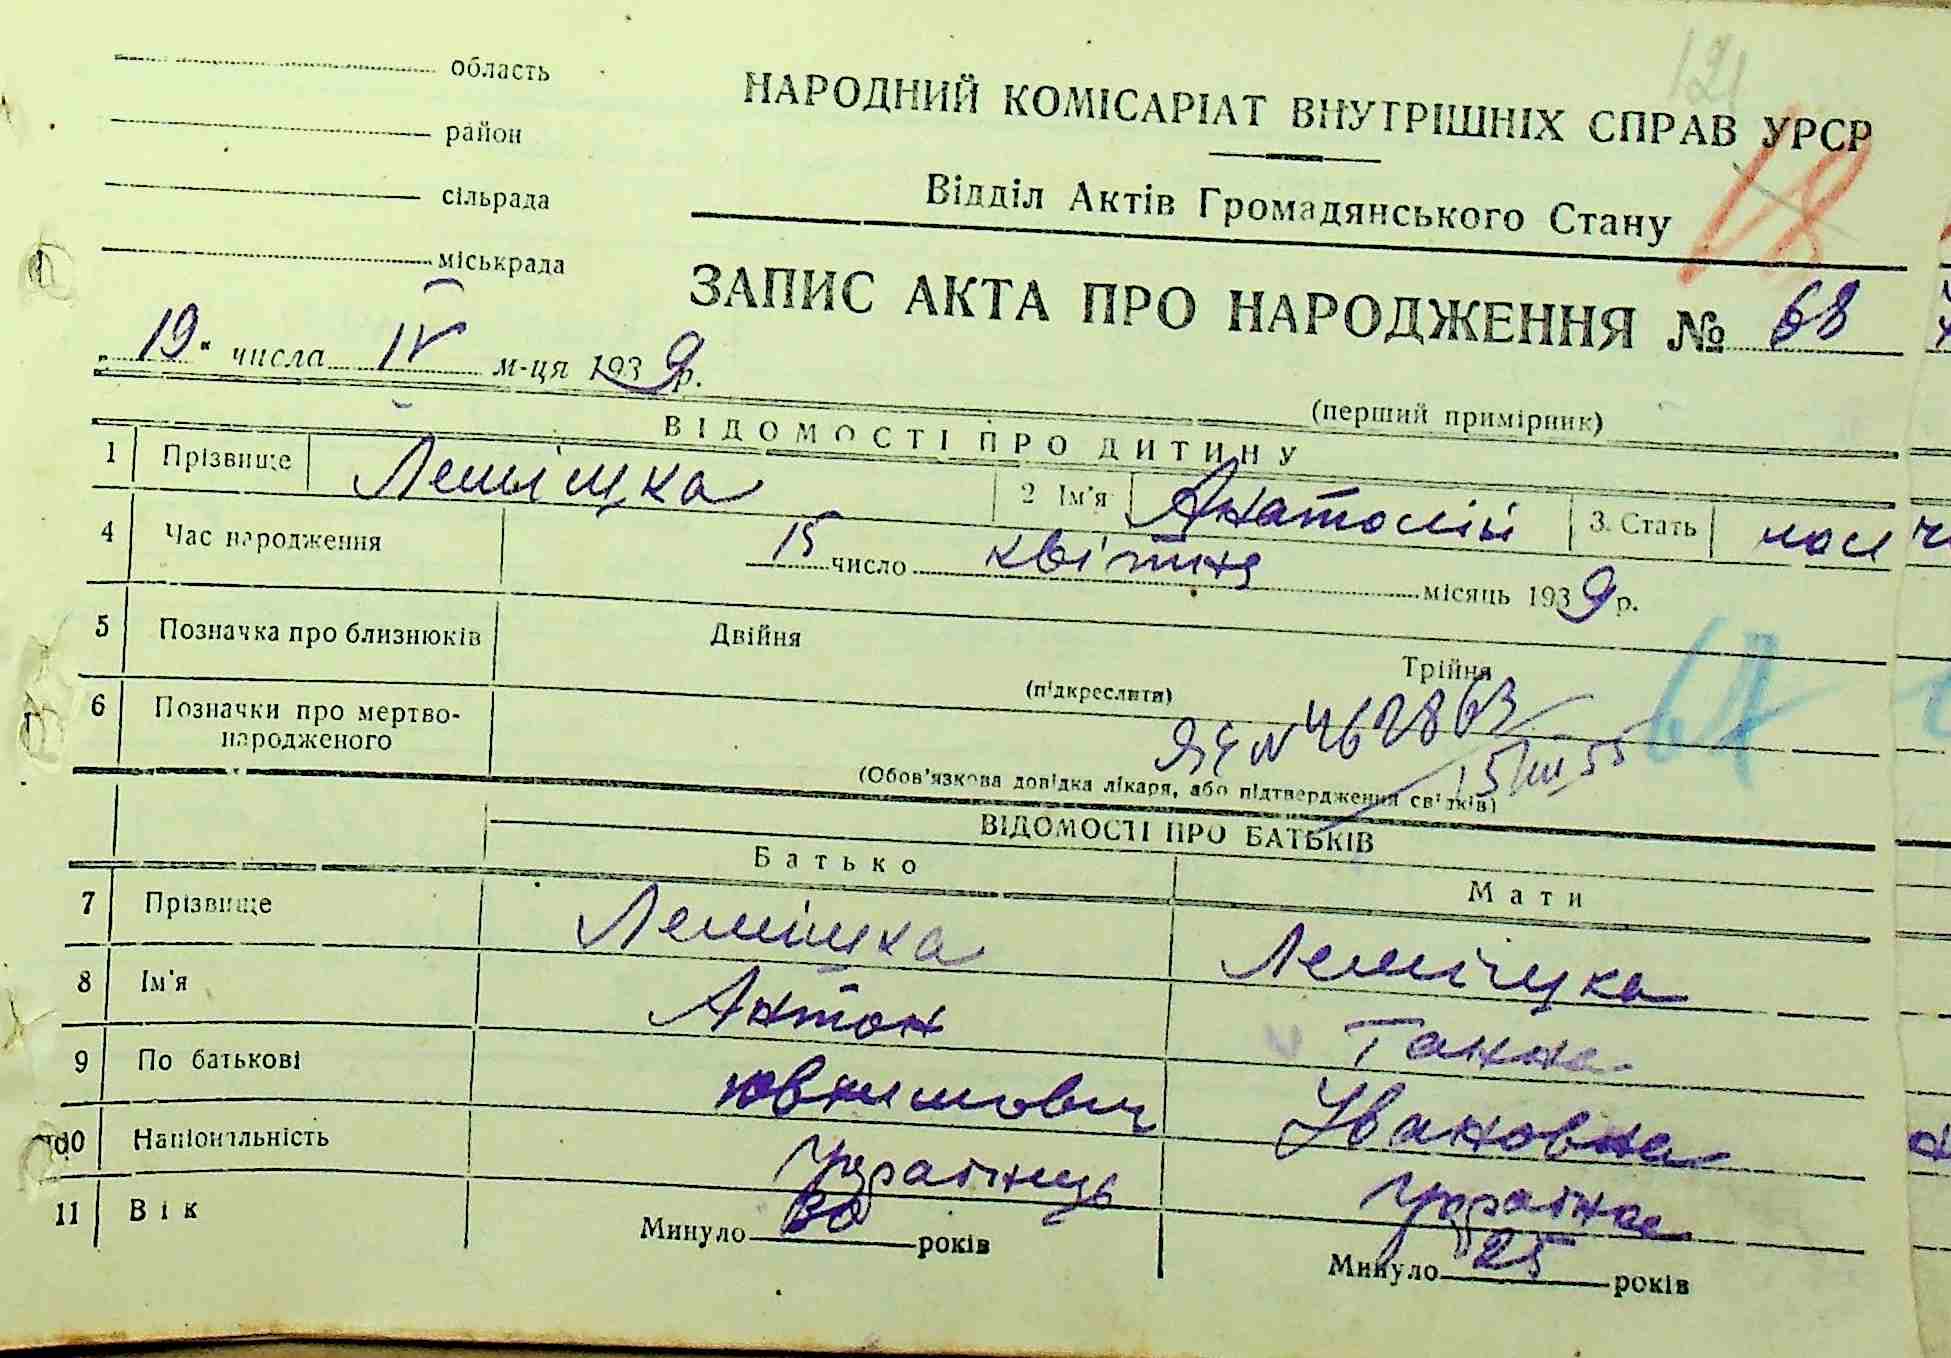 область
район
сільрада
міськрада
121
НАРОДНИЙ КОМІСАРІАТ ВНУТРІШНІХ СПРАВ УРСР
Відділ Актів Громадянського Стану
ЗАПИС АКТА ПРО НАРОДЖЕННЯ № 68
„19“ числа IV м-ця 1939 р.
(перший примірник)
ВІДОМОСТІ ПРО ДИТИНУ
1 Прізвище Леміщка 2 Ім'я Анатолій 3. Стать
4 Час народження 15 число квітня місяць 1939 р.
5 Позначка про близнюків Двійня Трійня
(підкреслити)
6 Позначки про мертво-
народженого
ЯЄ № 462863
15/III 55
(Обов'язкова довідка лікаря, або підтвердження свідків)
ВІДОМОСТІ ПРО БАТЬКІВ
Батько Мати
7 Прізвище Леміщка Леміщка
8 Ім'я Антон Ганна
9 По батькові Івановна
10 Національність Українець Українка
11 Вік Минуло 30 років Минуло 25 років